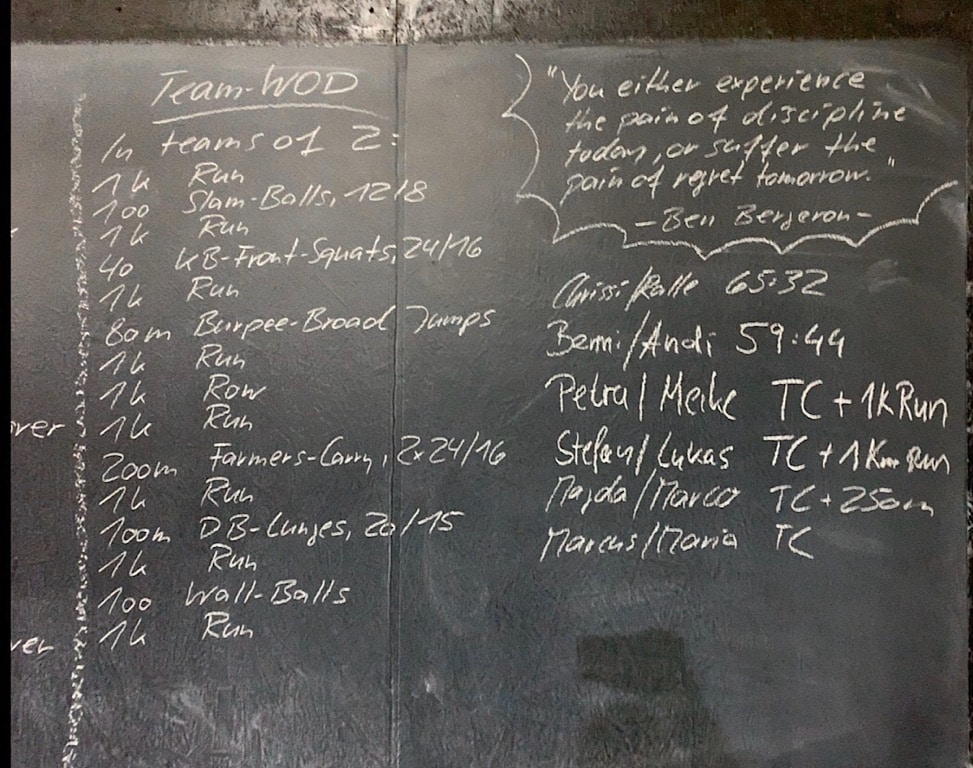 Team-WOD
In teams of 2:
1k Run
100 Slam-Balls, 12/8
1k Run
40 KB-Front-Squats, 24/16
1k Run
80m Burpee-Broad Jumps
1k Run
1k Row
1k Run
200m Farmers-Carry, 2x24/16
1k Run
100m DB-Lunges, 20/15
1k Run
100 Wall-Balls
1k Run
"You either experience
the pain of discipline
today, or suffer the
pain of regret tomorrow."
- Ben Bergeron -
Chrissi/Ralle 65:32
Benni/Andi 59:44
Petra/Meike TC + 1k Run
Stefan/Lukas TC + 1Km Run
Majda/Marco TC + 250m
Marcus/Maria TC
ver